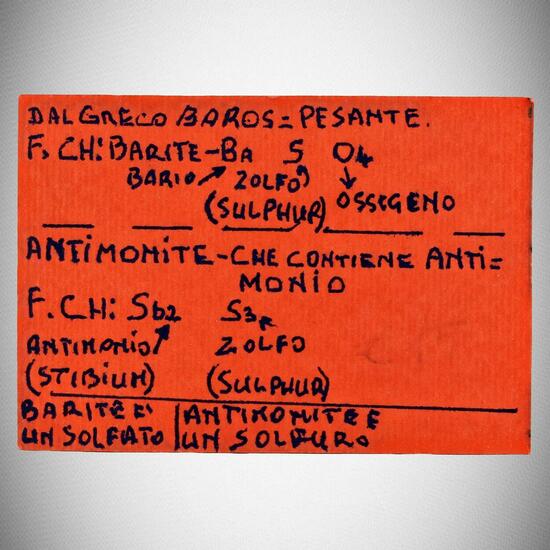 DAL GRECO BAROS= PESANTE.
F. CH: BARITE-Ba S O4
BARIO ZOLFO
(SULPHUR) OSSIGENO
ANTIMONITE-CHE CONTIENE ANTI=
MONIO
F. CH: Sb2 S3
ANTIMONIO ZOLFO
(STIBIUM) (SULPHUR)
BARITE E' ANTIMONITE E
UN SOLFATO UN SOLFURO